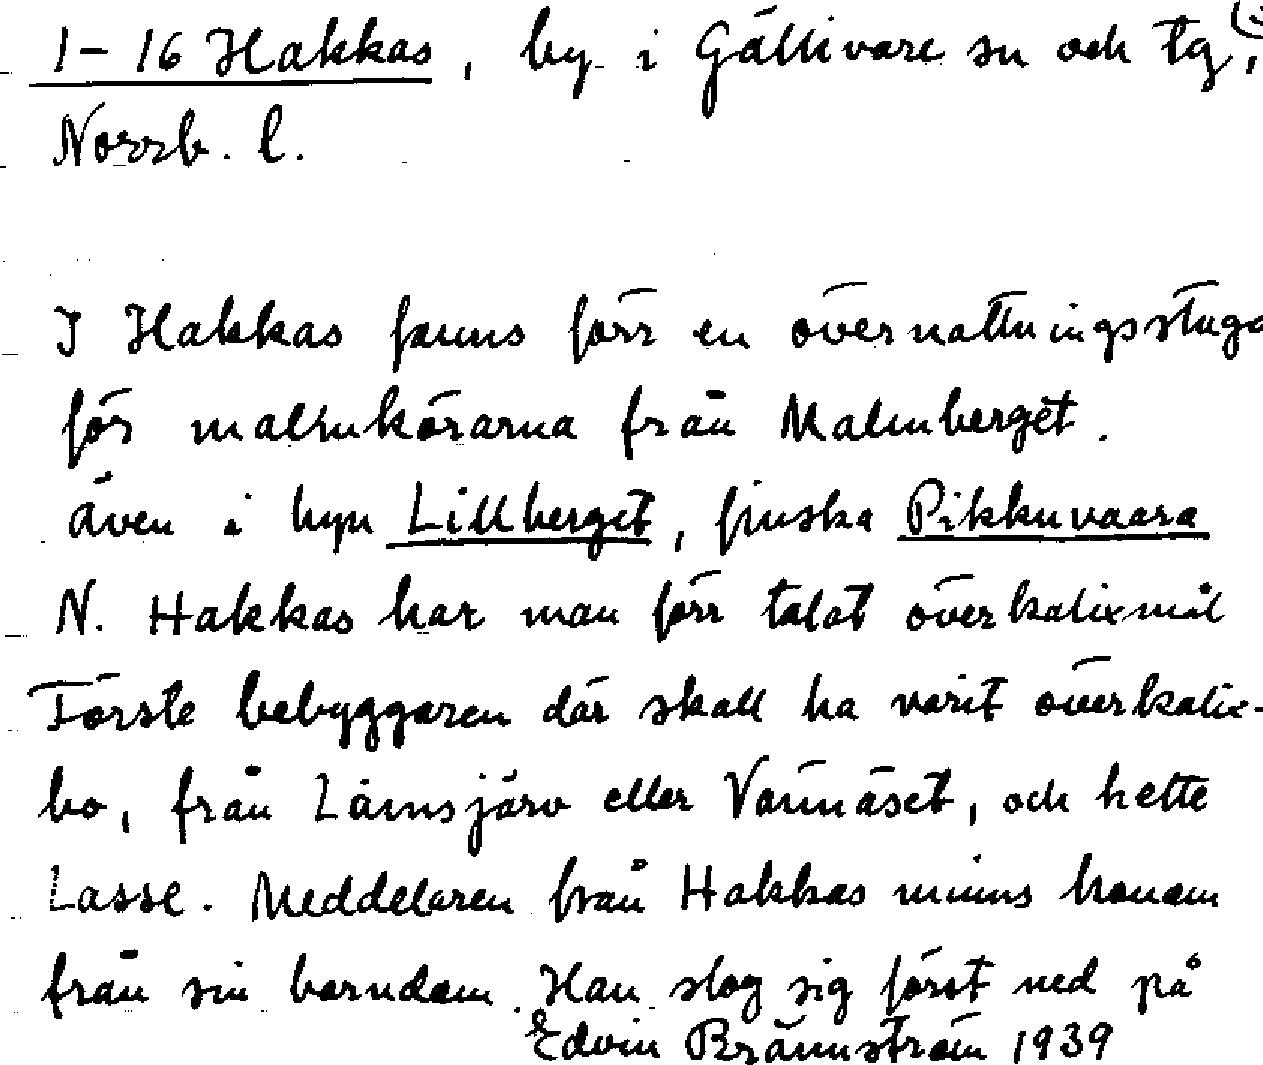 1-16 Hakkas, by i Gällivare sn och tg,
Norrb. l.
I Hakkas fanns förr en övernattningsstuga
för malmkörarna från Malmberget.
även i byn Lillberget, finska Pikkuvaara
N. Hakkas har man förr talat överkalixmål
Förste bebyggaren där skall ha varit överkalix-
bo, från Lansjärv eller Vännäset, och hette
Lasse. Meddelaren från Hakkas minns honom
från sin barndom. Han slog sig först ned på
Edvin Brännström 1939